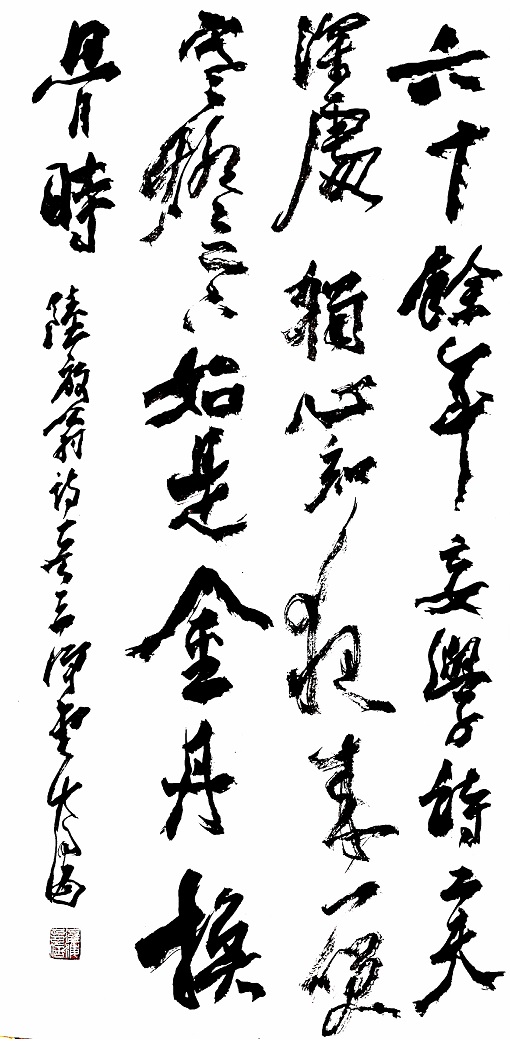 六十餘年妄學詩工夫
深處獨心知夜來一笑
寒燈下始是金丹換
骨時
陸放翁詩